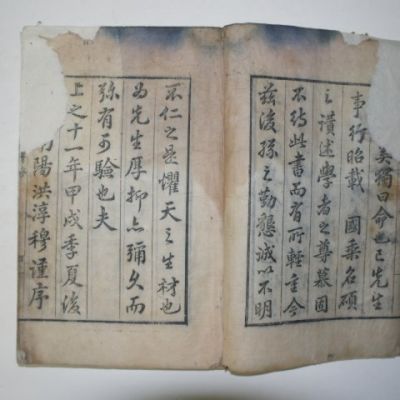 矣獨曰命也已先生
事行昭載 國乘名碩
之讃述學者之尊慕固
不待此書而有所輕重今
玆後孫之勤懇誠以不明
不仁之是懼天之生材也
為先生厚抑亦彌久而
彌有可驗也夫
上之十一年甲戌季夏後
陽洪淳穆謹序